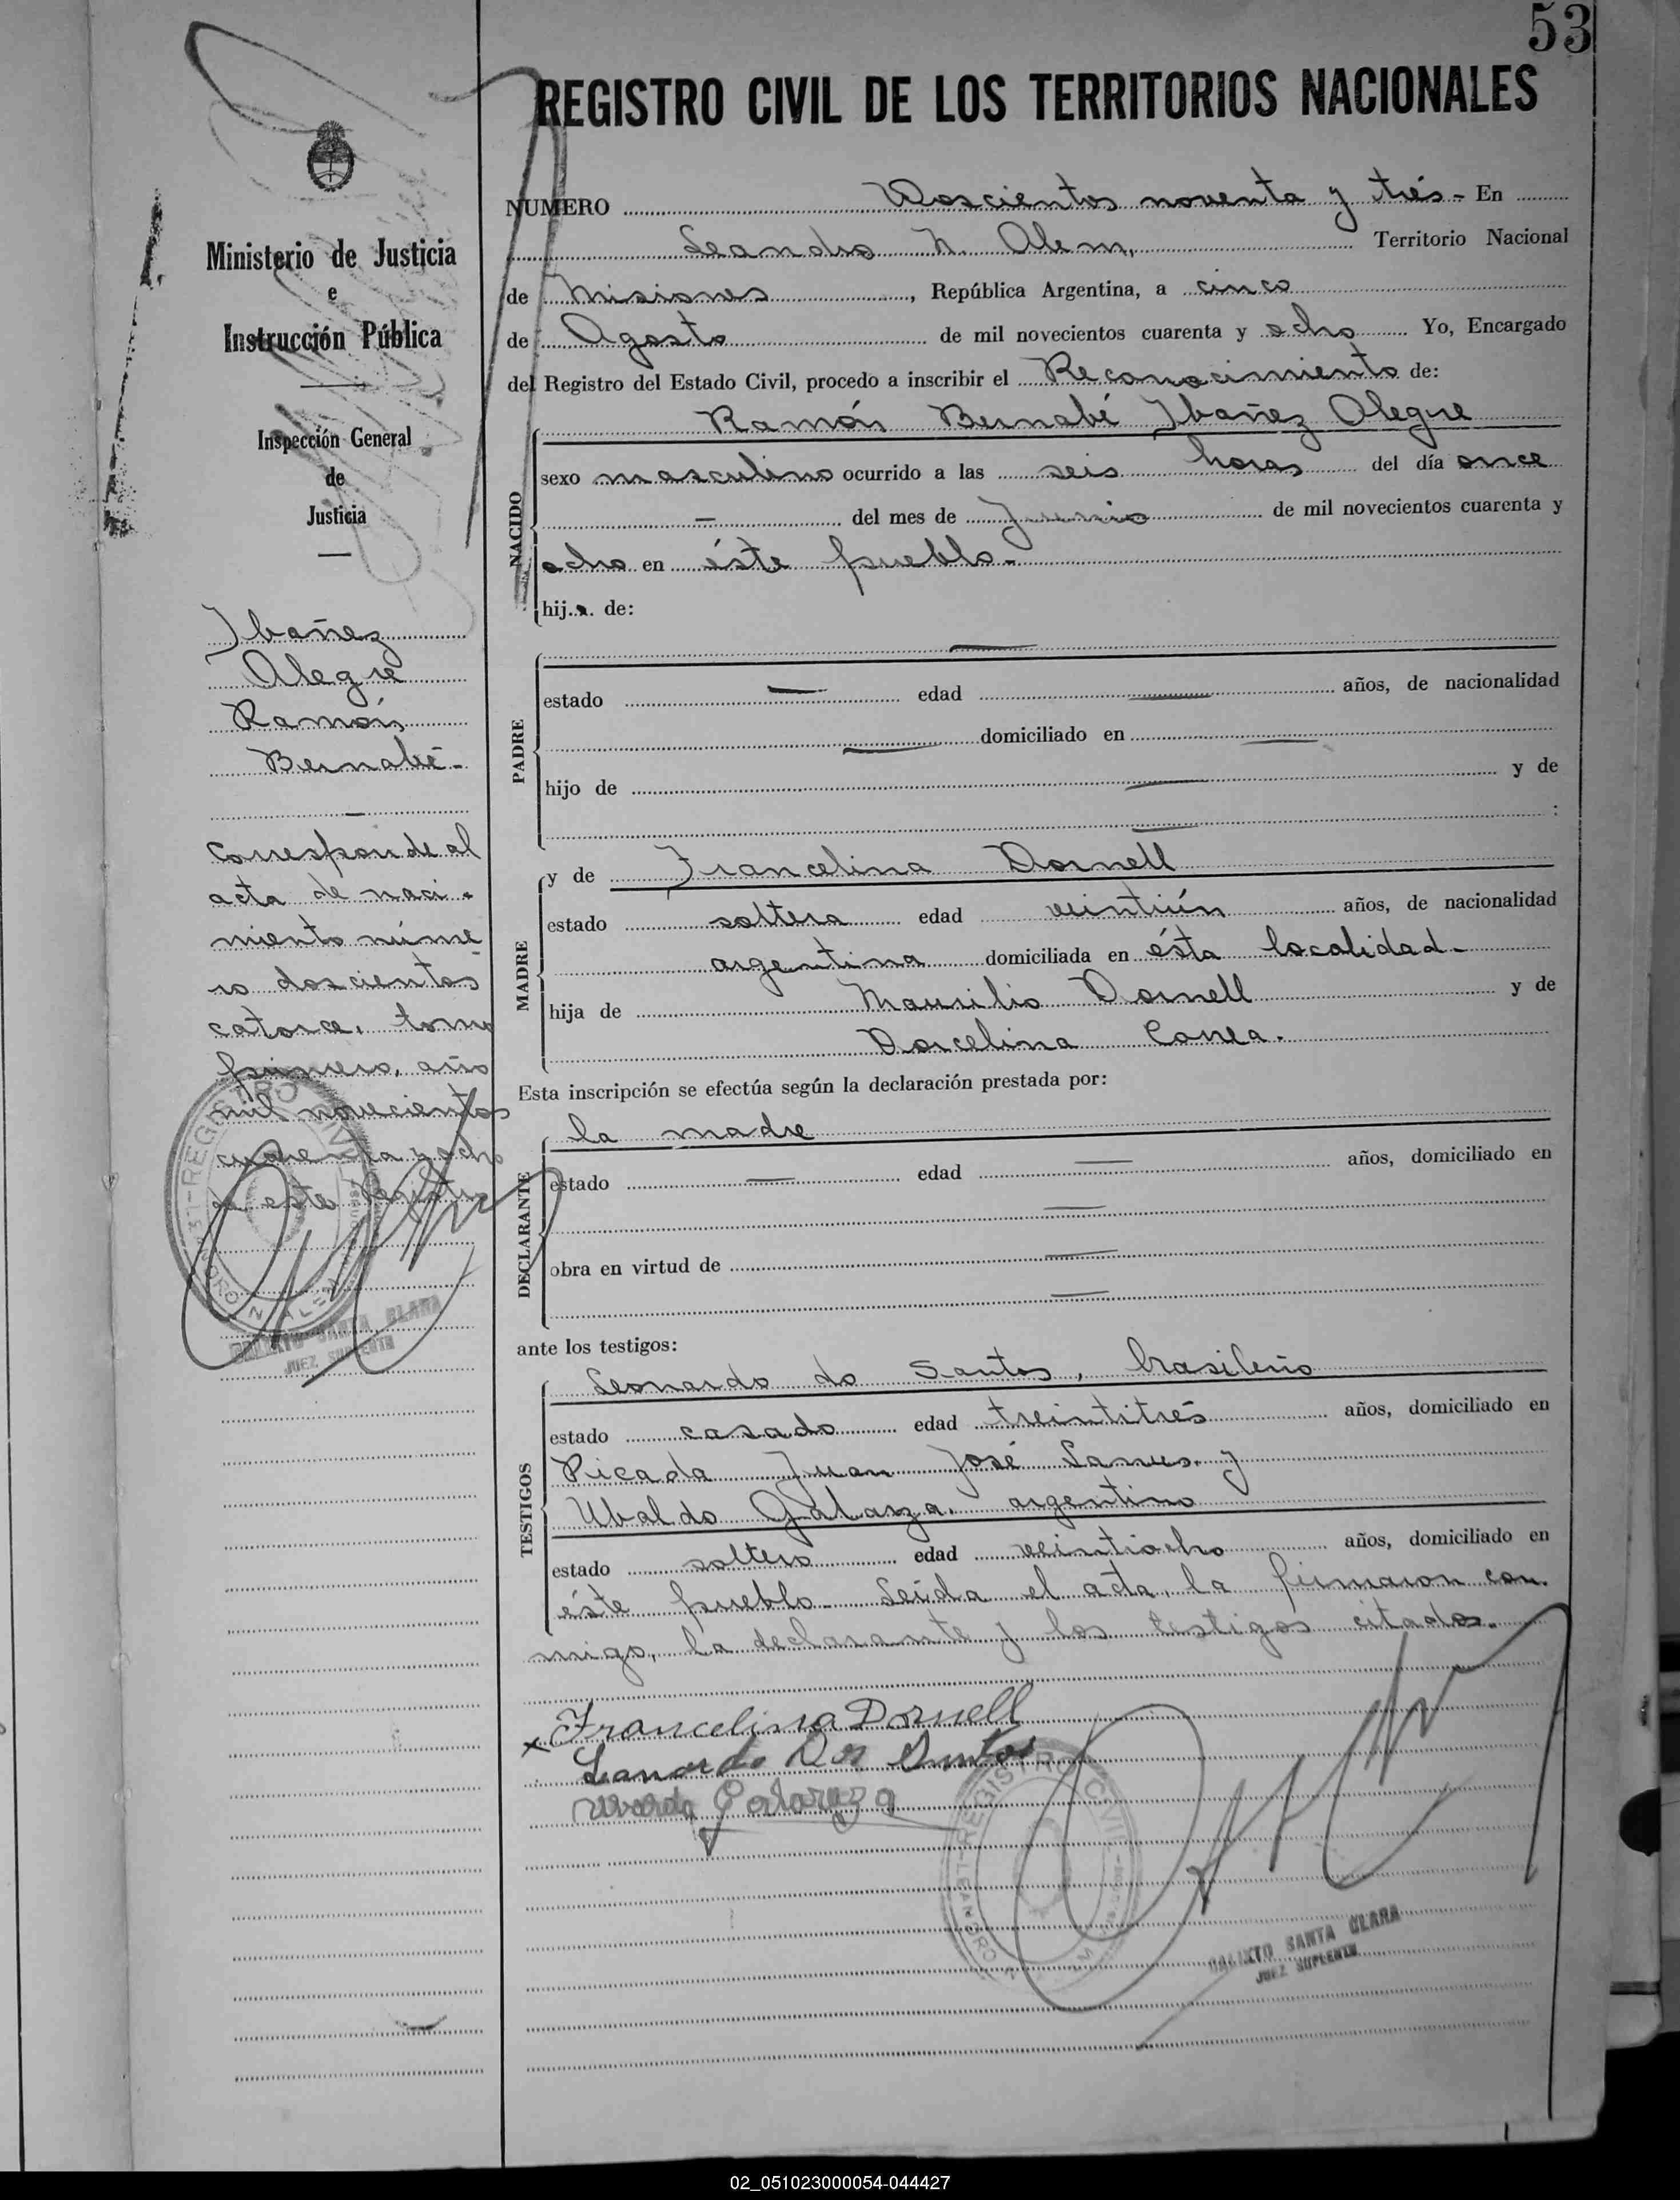 53
REGISTRO CIVIL DE LOS TERRITORIOS NACIONALES
Ministerio de Justicia
e
Instrucción Pública
Inspección General
de
Justicia
Ibañez
Alegre
Ramón
Bernabé.-
Corresponde al
acta de naci-
miento núme-
ro doscientos
catorce, tomo
primero, año
mil novecientos
cuarenta y ocho
de este Registro
REGISTRO CIVIL
LEANDRO N. ALEM
CALIXTO SANTA CLARA
JUEZ SUPLENTE
NUMERO Doscientos noventa y trés.- En
Leandro N. Alem, Territorio Nacional
de Misiones, República Argentina, a cinco
de Agosto de mil novecientos cuarenta y ocho Yo, Encargado
del Registro del Estado Civil, procedo a inscribir el Reconocimiento de:
Ramón Bernabé Ibañez Alegre
NACIDO
sexo masculino ocurrido a las seis horas del día once
— del mes de Junio de mil novecientos cuarenta y
ocho en éste pueblo.-
hijo de:
PADRE
—
estado — edad — años, de nacionalidad
— domiciliado en —
hijo de — y de
— :
MADRE
y de Francelina Dornell
estado soltera edad veintiún años, de nacionalidad
argentina domiciliada en ésta localidad.-
hija de Maurilio Dornell y de
Dorcelina Correa.
Esta inscripción se efectúa según la declaración prestada por:
DECLARANTE
la madre
estado — edad — años, domiciliado en
—
obra en virtud de —
—
ante los testigos:
TESTIGOS
Leonardo do Santos, brasileño
estado casado edad treintitrés años, domiciliado en
Picada Juan José Lanus. y
Ubaldo Galarza. argentino
estado soltero edad veintiocho años, domiciliado en
éste pueblo. Leída el acta, la firmaron con-
migo, la declarante y los testigos citados.-
x Francelina Dornell
Leonardo Dos Santos
Galarza
REGISTRO CIVIL
LEANDRO N.
CALIXTO SANTA CLARA
JUEZ SUPLENTE
02_051023000054-044427